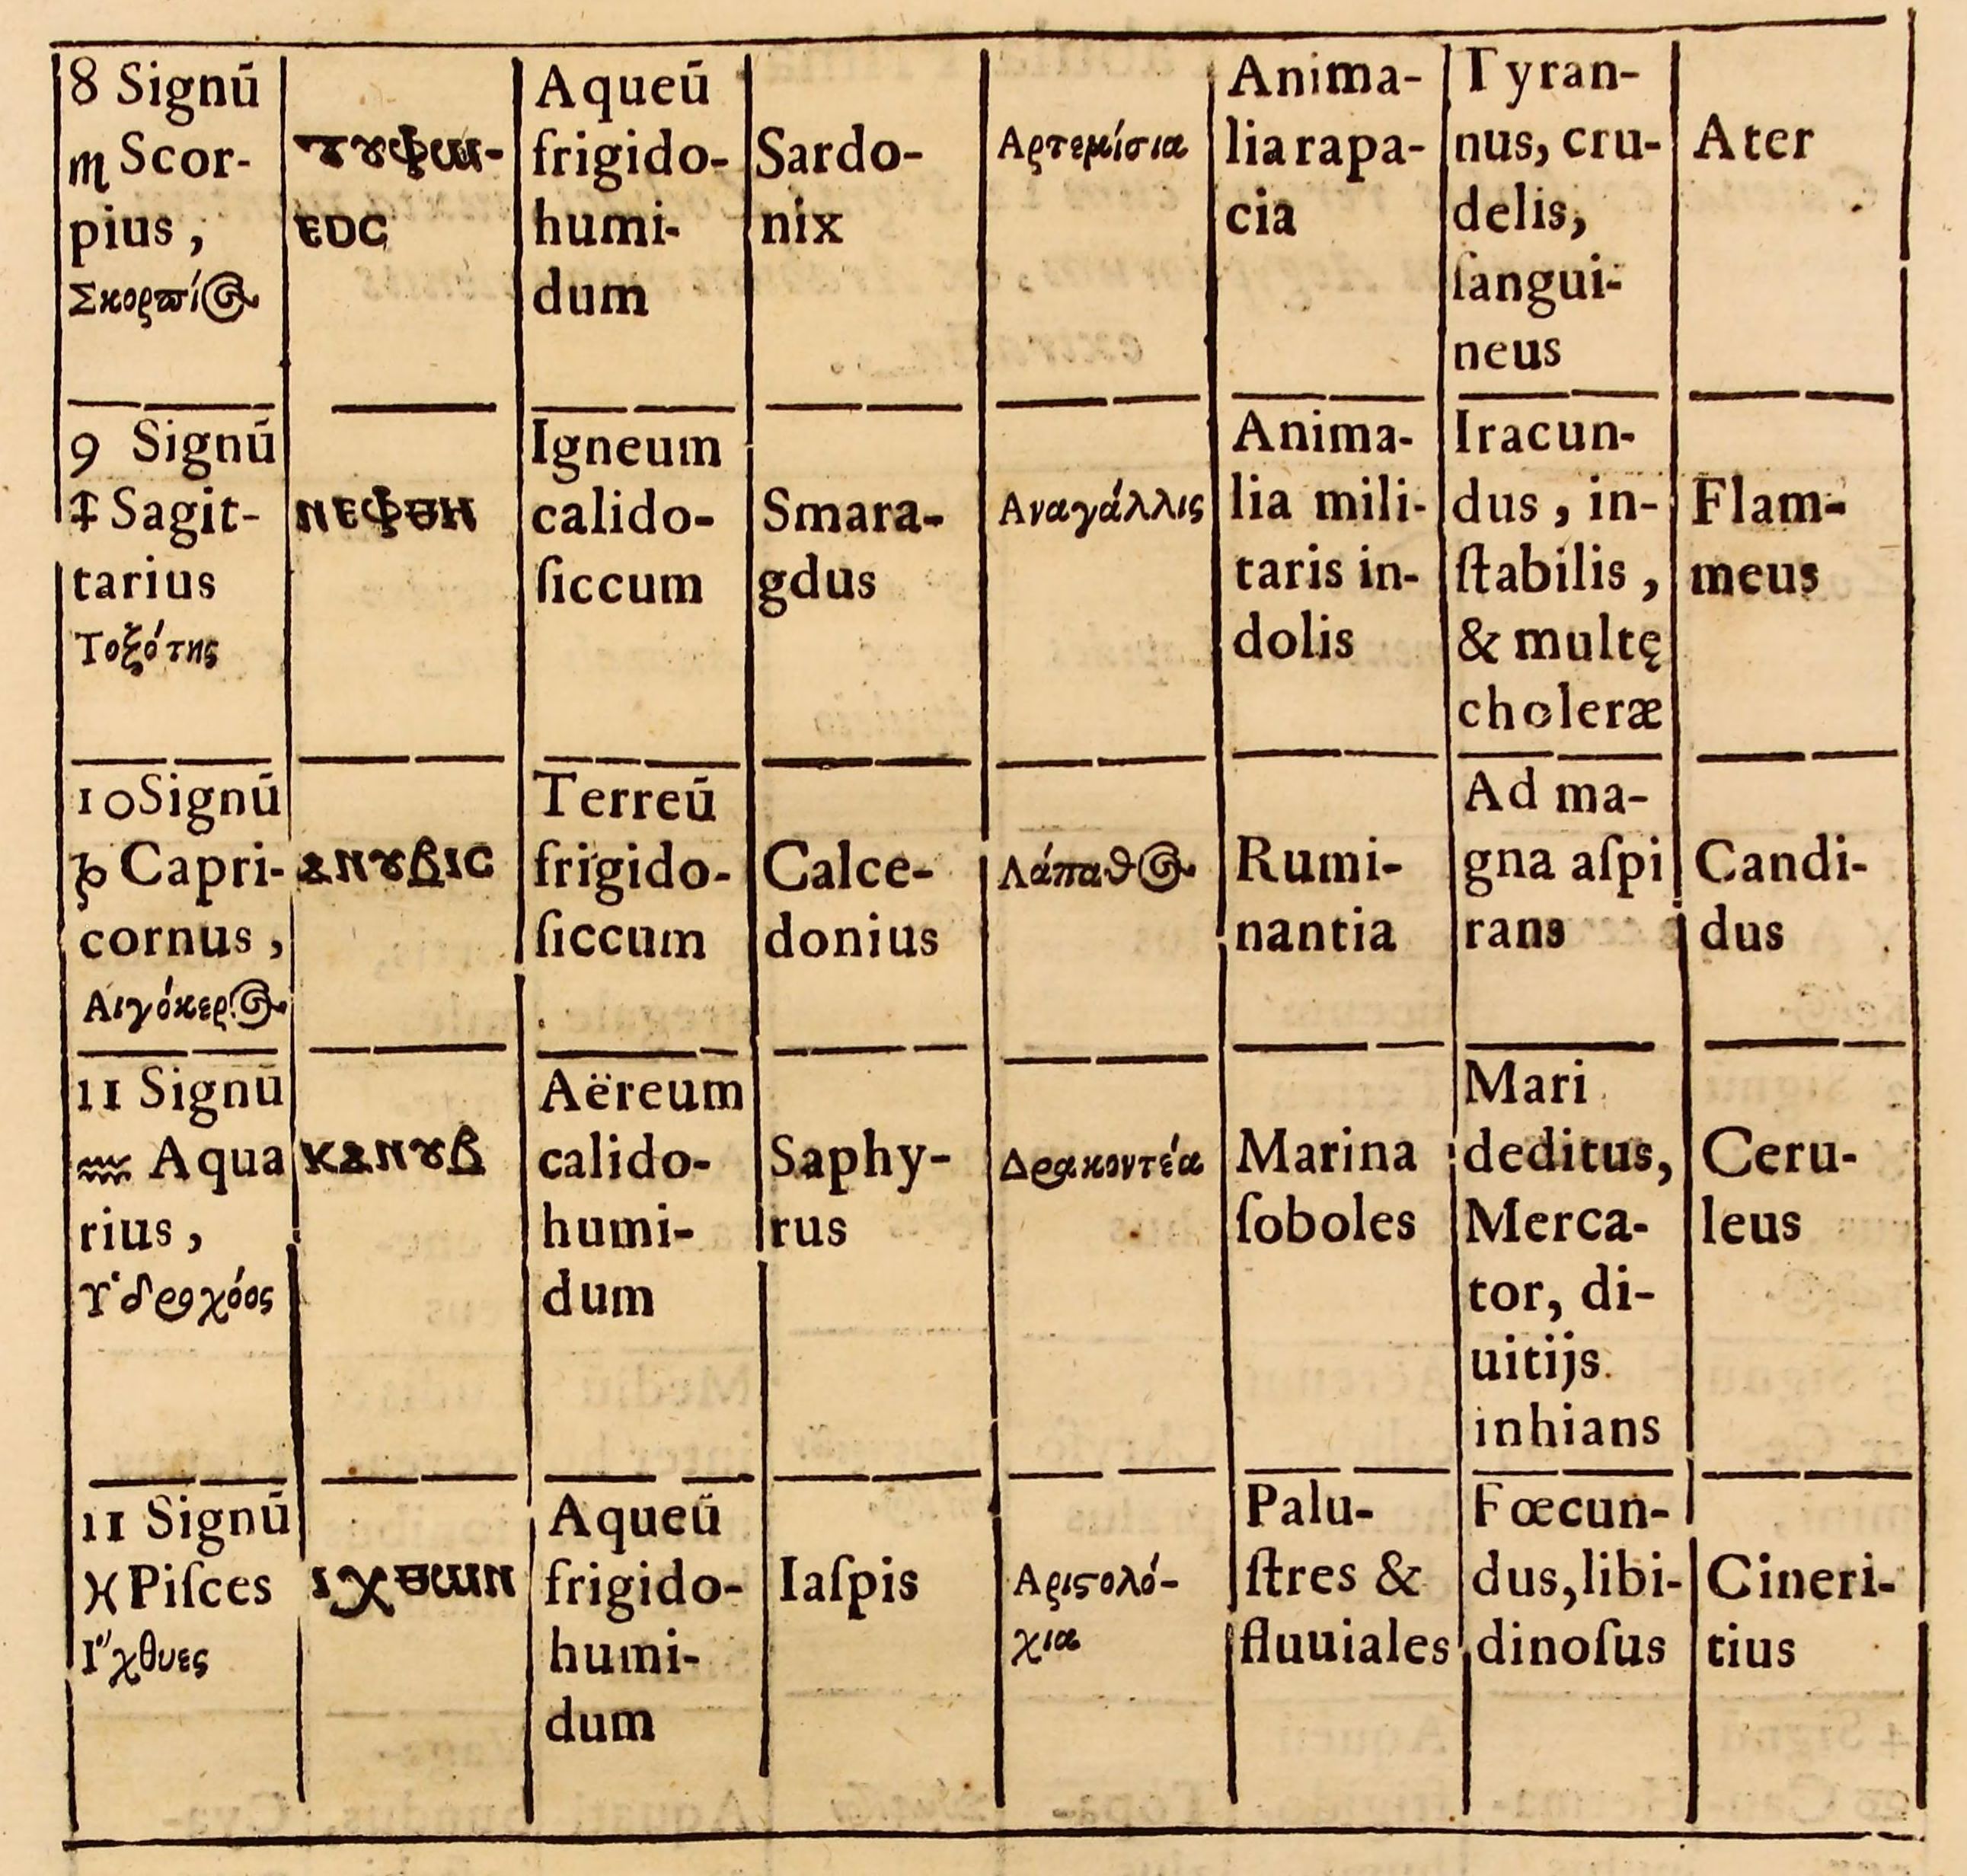 8 Signū
♏ Scor-
pius,
Σκορπίος
ⲧⲩⲫⲱ-
ⲉⲟⲥ
Aqueū
frigido-
humi-
dum
Sardo-
nix
Αρτεμίσια
Anima-
lia rapa-
cia
Tyran-
nus, cru-
delis,
ſangui-
neus
Ater
9 Signū
♐ Sagit-
tarius
Τοξότης
ⲛⲉⲫⲑⲏ
Igneum
calido-
ſiccum
Smara-
gdus
Αναγάλλις
Anima-
lia mili-
taris in-
dolis
Iracun-
dus, in-
ſtabilis,
& multę
choleræ
Flam-
meus
10 Signū
♑ Capri-
cornus,
Αιγόκερος
ⲁⲛⲩⲃⲓⲥ
Terreū
frigido-
ſiccum
Calce-
donius
Λάπαθος
Rumi-
nantia
Ad ma-
gna aſpi
rans
Candi-
dus
11 Signū
♒ Aqua
rius,
Υ῾δροχόος
ⲕⲁⲛⲩⲃ
Aëreum
calido-
humi-
dum
Saphy-
rus
Δρακοντέα
Marina
ſoboles
Mari
deditus,
Merca-
tor, di-
uitijs
inhians
Ceru-
leus
11 Signū
♓ Piſces
Ἴχθυες
ⲓⲭⲑⲱⲛ
Aqueū
frigido-
humi-
dum
Iaſpis
Αριϛολό-
χια
Palu-
ſtres &
fluuiales
Fœcun-
dus, libi-
dinoſus
Cineri-
tius